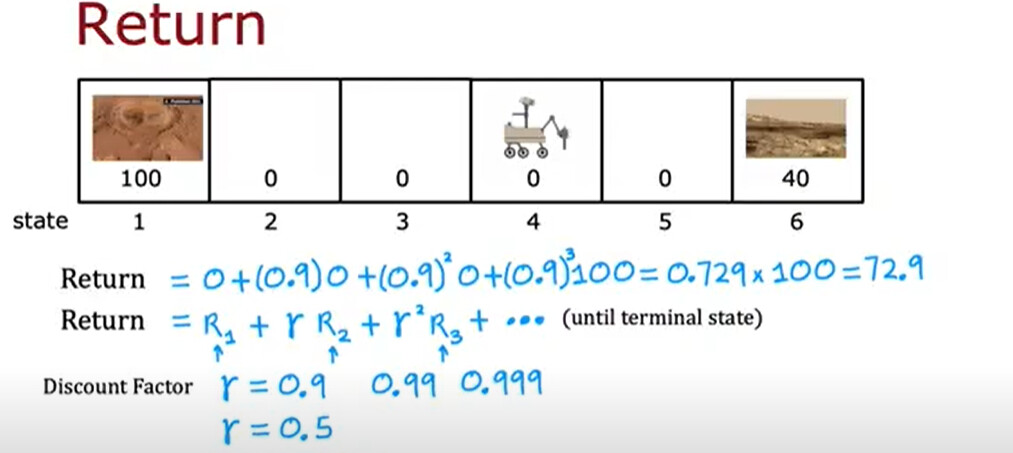 Return
100 0 0 0 0 40
state 1 2 3 4 5 6
Return = 0 + (0.9)0 + (0.9)²0 + (0.9)³100 = 0.729 × 100 = 72.9
Return = R₁ + r R₂ + r² R₃ + ••• (until terminal state)
↑ ↑ ↑
Discount Factor r = 0.9 0.99 0.999
r = 0.5